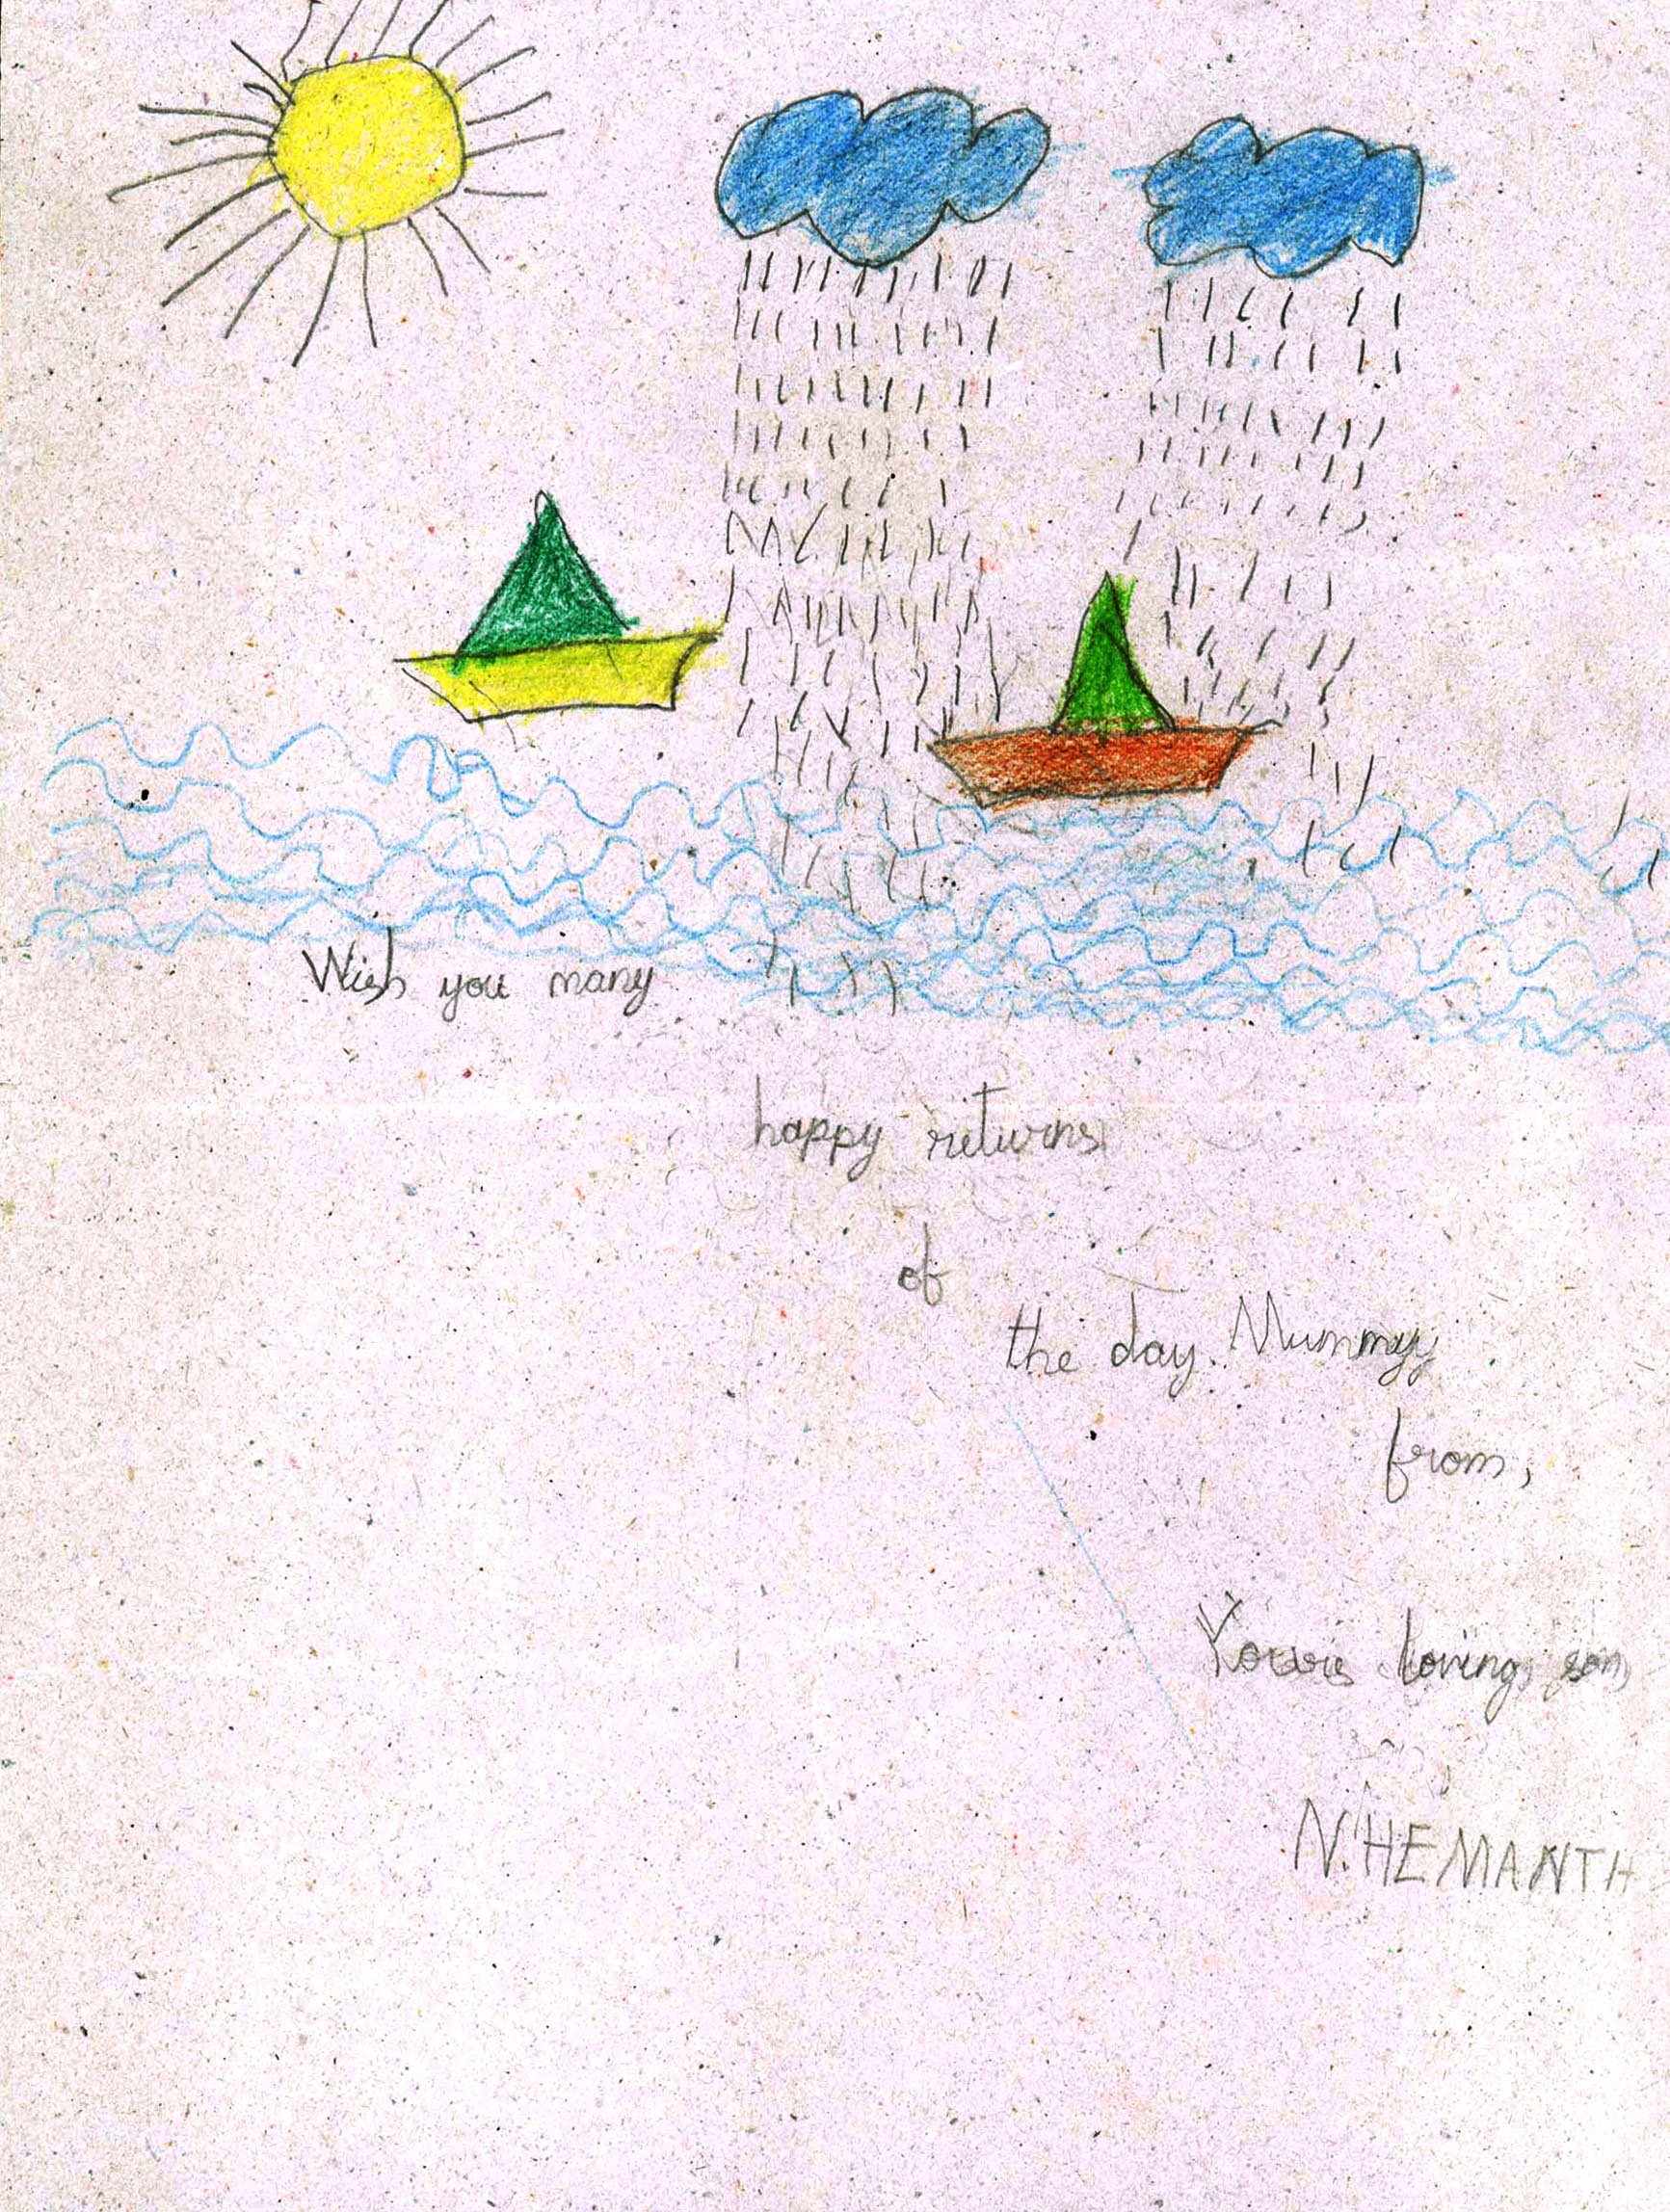 Wish you many
happy returns
of
the day. Mummy
from,
Yours loving son,
N.HEMANTH